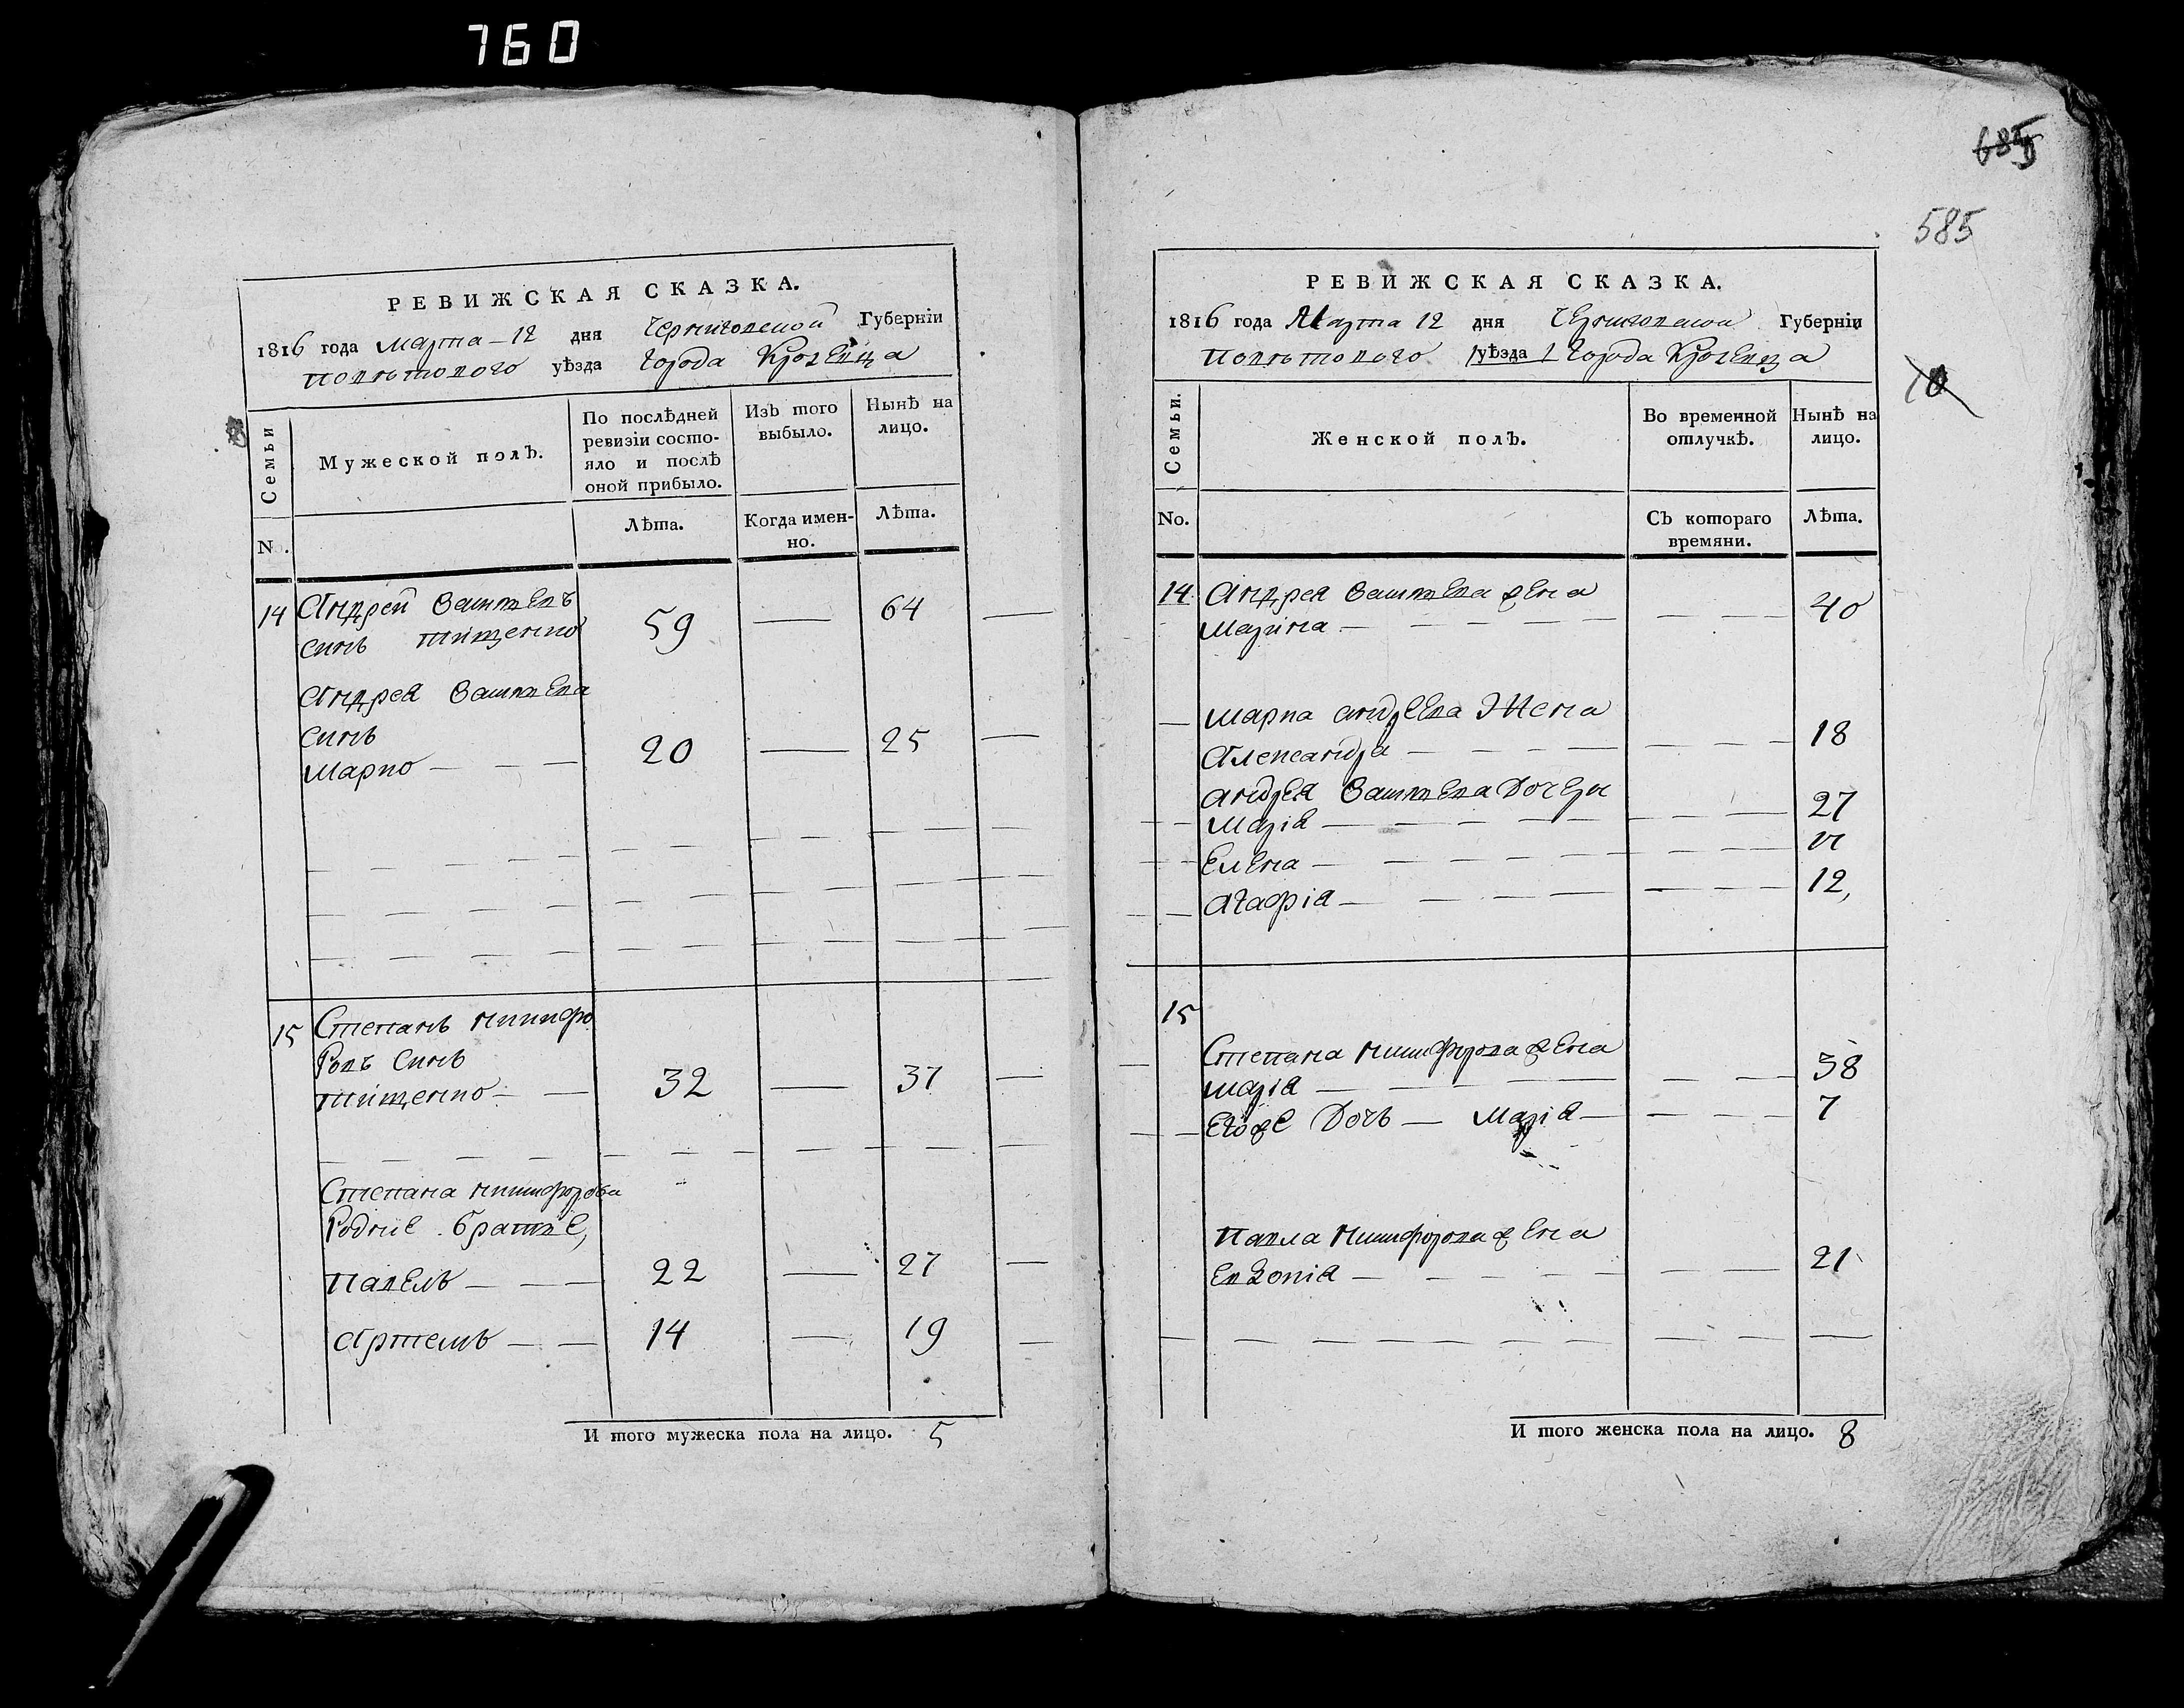 760
РЕВИЖСКАЯ СКАЗКА.
1816 года марта - 12 дня Черниговской Губерніи
уѣзда города Кролевца
Семьи
Мужеской полъ.
По послѣдней ревизіи состо-
яло и послѣ
оной прибыло.
Изъ того выбыло.
Нынѣ на лицо.
N .
Лѣта.
Когда имен-
но.
Лѣта.
14 Андрей
синъ Тищенко 59 — 64
Андрея
синъ
Марко 20 — 25
15 Степанъ Никифо
ровъ синъ
Тищенко 32 — 37
Степана Никифорова
Родніе братье,
Павелъ 22 — 27
Артемъ 14 — 19
И того мужеска пола на лицо. 5
685
585
10
РЕВИЖСКАЯ СКАЗКА.
1816 года Марта 12 дня Черниговской Губерніи
уѣзда города Кролевца
Семьи.
Женской полъ.
Во временной отлучкѣ.
Нынѣ на лицо.
No.
Съ котораго времяни.
Лѣта.
14 Андрея жена
Марина 40
Марка Андреева жена
Александра 18
Андрея Дочери
Марія 27
Елена
Агафія 12,
15
Степана Никифорова жена
Марія 38
Егоже Дочь — Марія 7
Павла Никифорова жена
Евдокія 21
И того женска пола на лицо. 8